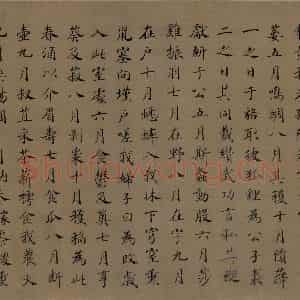 葽五月鳴蜩八月其穫十月隕蘀
一之日于貉取彼狐狸為公子裘
二之日其同載纘武功言私其豵
獻豜于公五月斯螽動股六月莎
雞振羽七月在野八月在宇九月
在戶十月蟋蟀入我牀下穹窒熏
鼠塞向墐戶嗟我婦子曰為改歲
入此室處六月食鬱及薁七月亨
葵及菽八月剝棗十月穫稻為此
春酒以介眉壽七月食瓜八月斷
壺九月叔苴采荼薪樗食我農夫